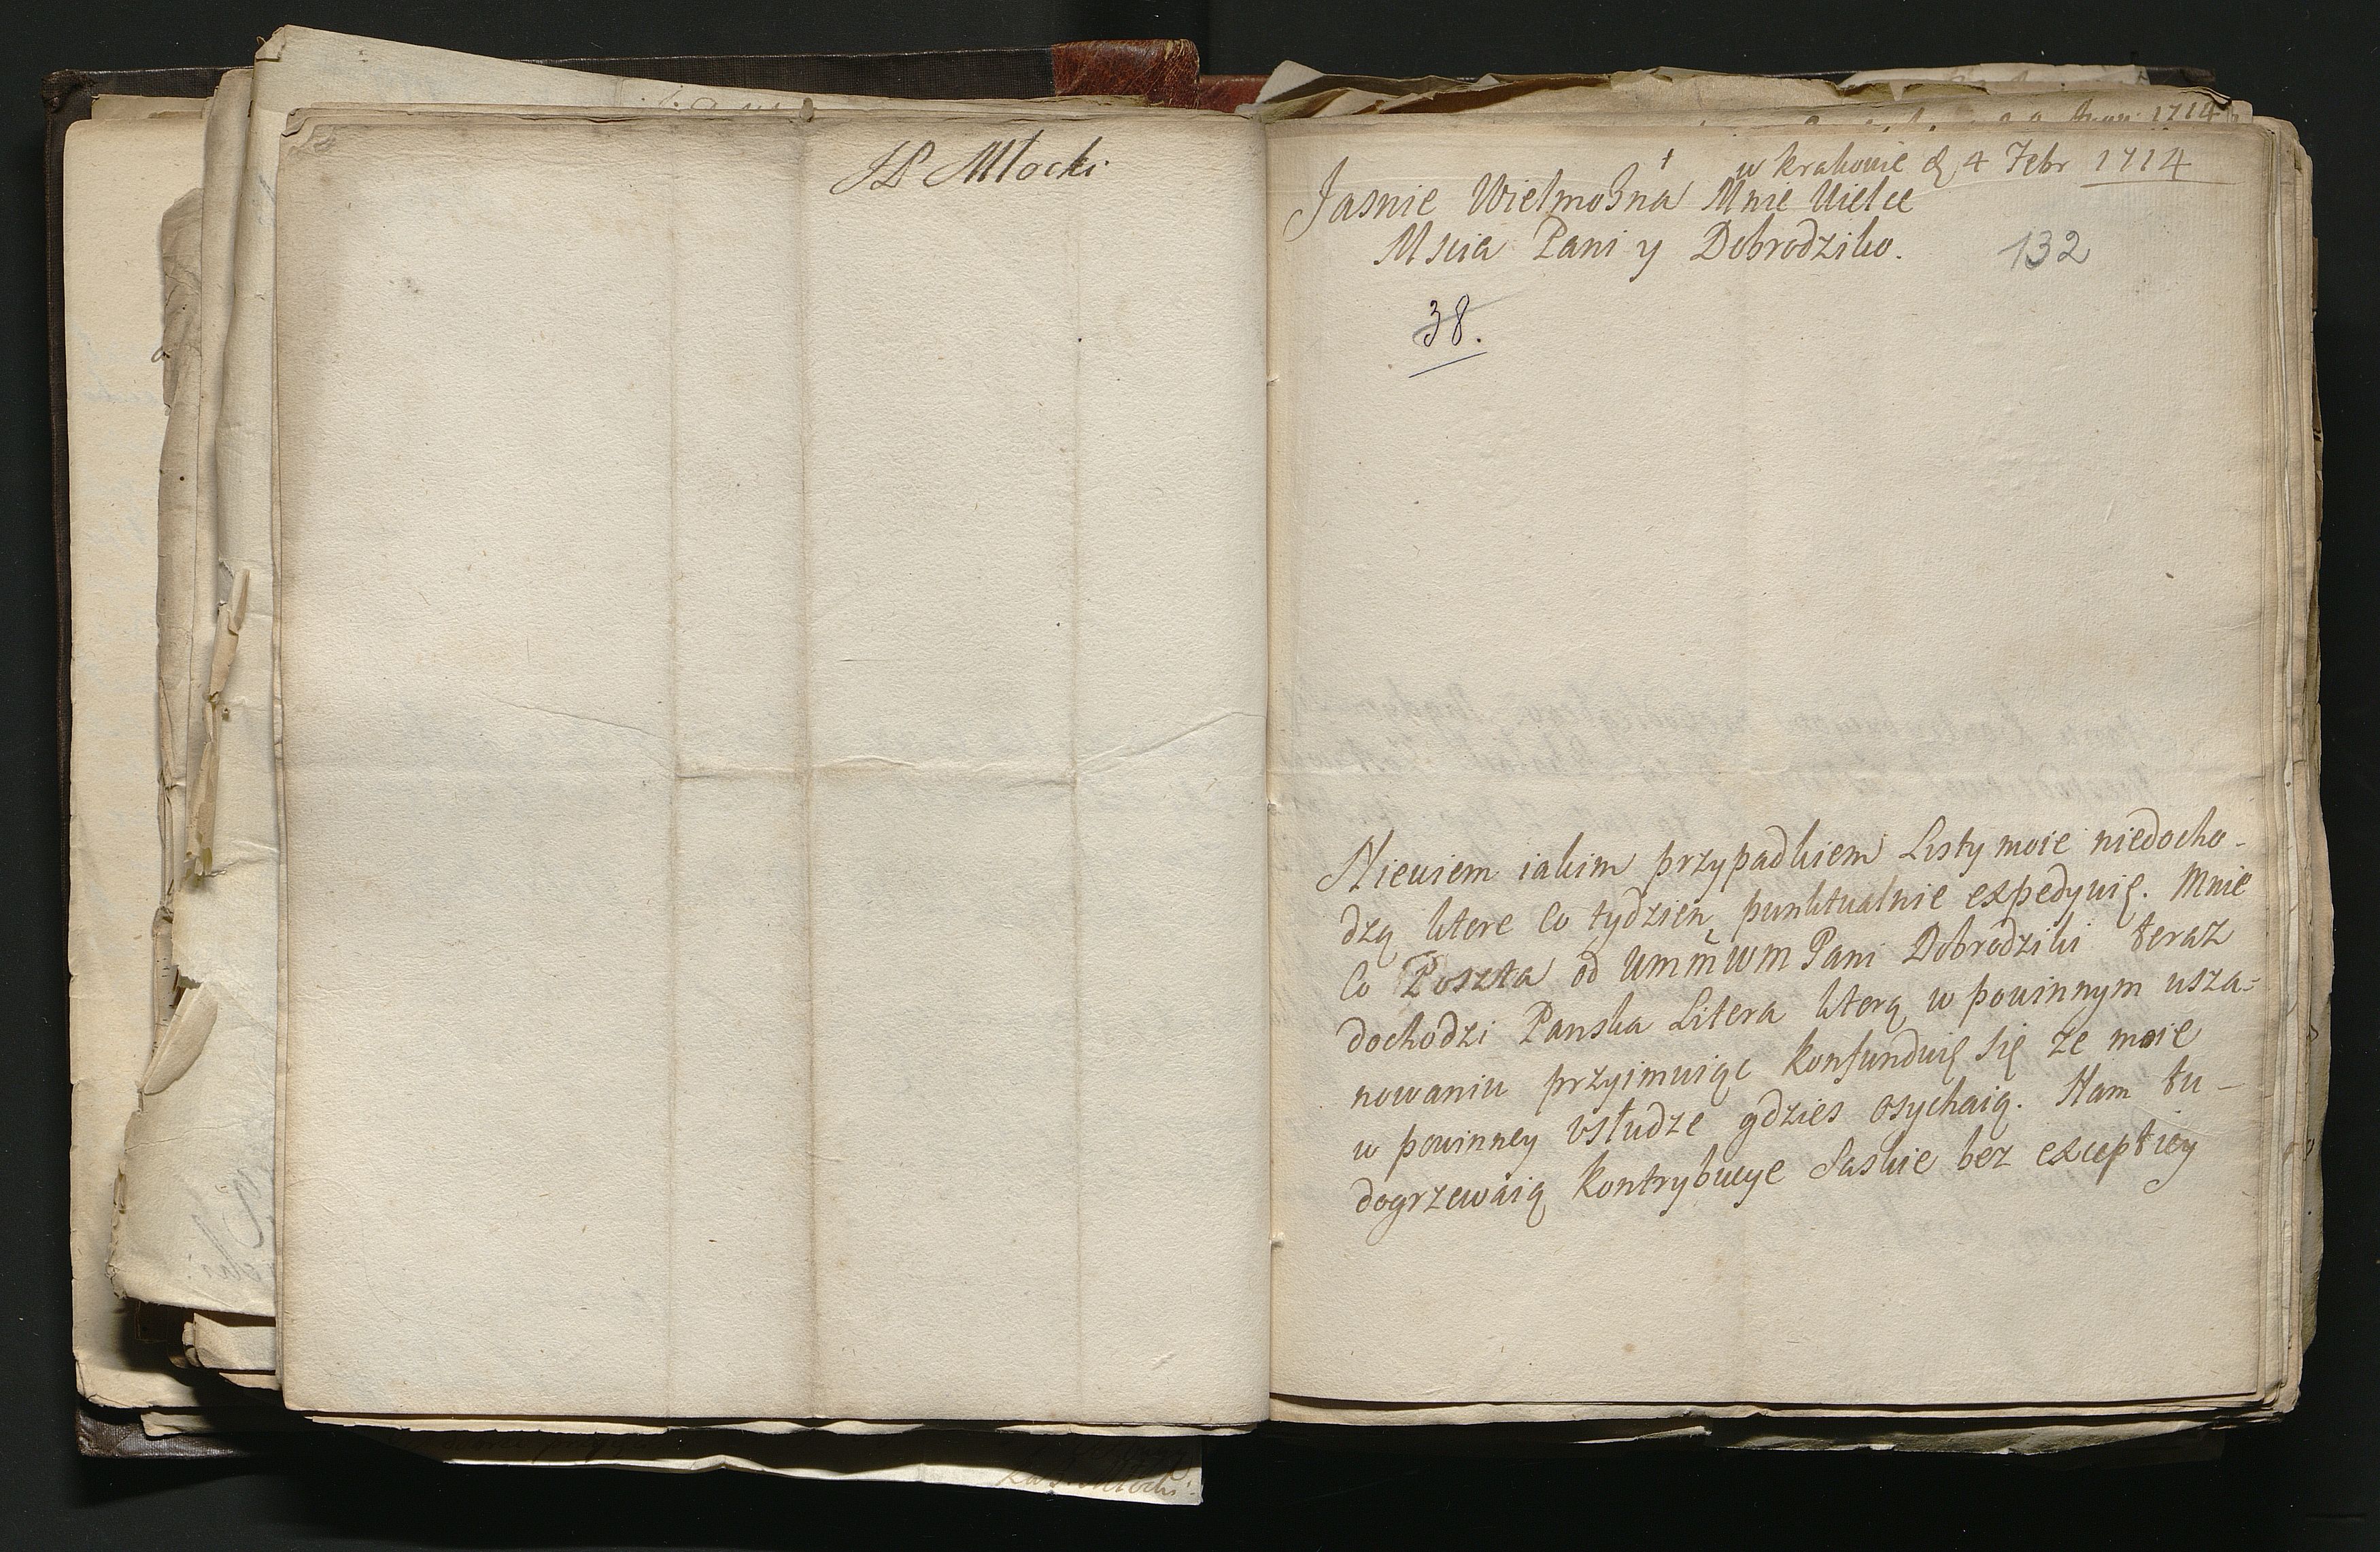 JP Młocki
w krakowie d 4 Febr 1714
Jasnie Wielmożna Mnie Wielce
Mscia Pani y Dobrodziko.
132
38.
Niewiem iakim przypadkiem Listy moie niedocho-
dzą ktore Co tydzien punktualnie expedyuię. Mnie
Co Poszta od WMMWM Pani Dobrodziki teraz
dochodzi Panska Litera ktorą w powinnym usza-
nowaniu przyimuiąc konfunduię się ze moie
w powinney usłudze gdzies osychaią. Nam tu-
dogrzewaią kontrybucye Saskie bez exceptiey